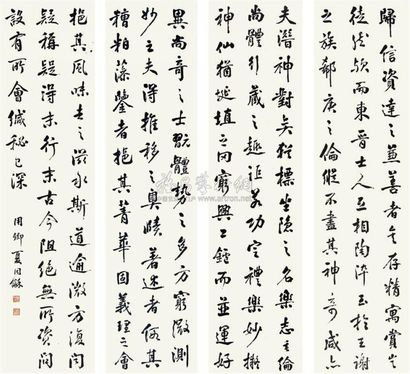 歸信賢達之兼善者矣存精寓賞豈
徒然歟而東晉士人互相陶淬至於王謝
之族郗庾之倫縱不盡其神奇咸亦
夫潛神對奕猶標坐隱之名樂志垂綸
尚體行藏之趣詎若功定禮樂妙擬
神仙猶埏埴之罔窮與工鑪而並運好
異尚奇之士翫體勢之多方窮微測
妙之夫得推移之奧賾著述者假其
糟粕藻鑒者挹其菁華固義理之會
挹其風味去之滋永斯道逾微方復聞
疑稱疑得末行末古今阻絕無所質問
設有所會緘秘已深 用卿夏同龢